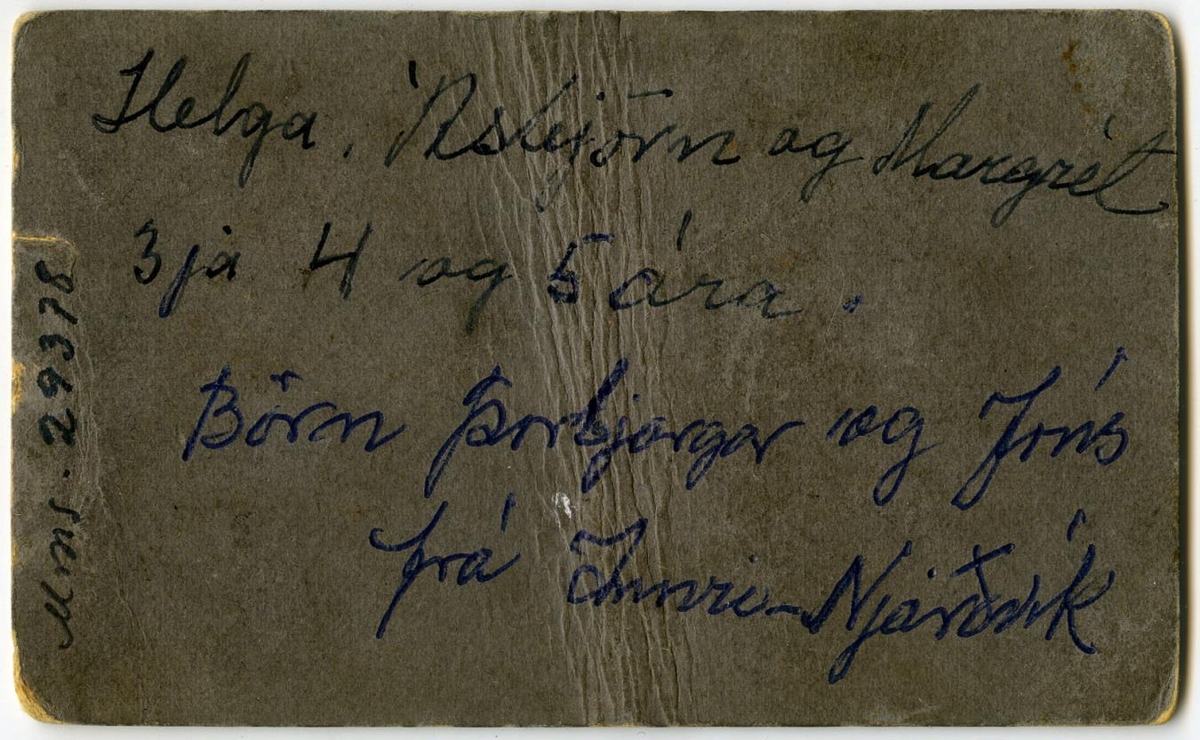 Helga, Ásbjörn og Margrét
3já 4 og 5 ára.
Börn Þorbjargar og Jóns
frá Innri-Njarðvík
Mms. 29378